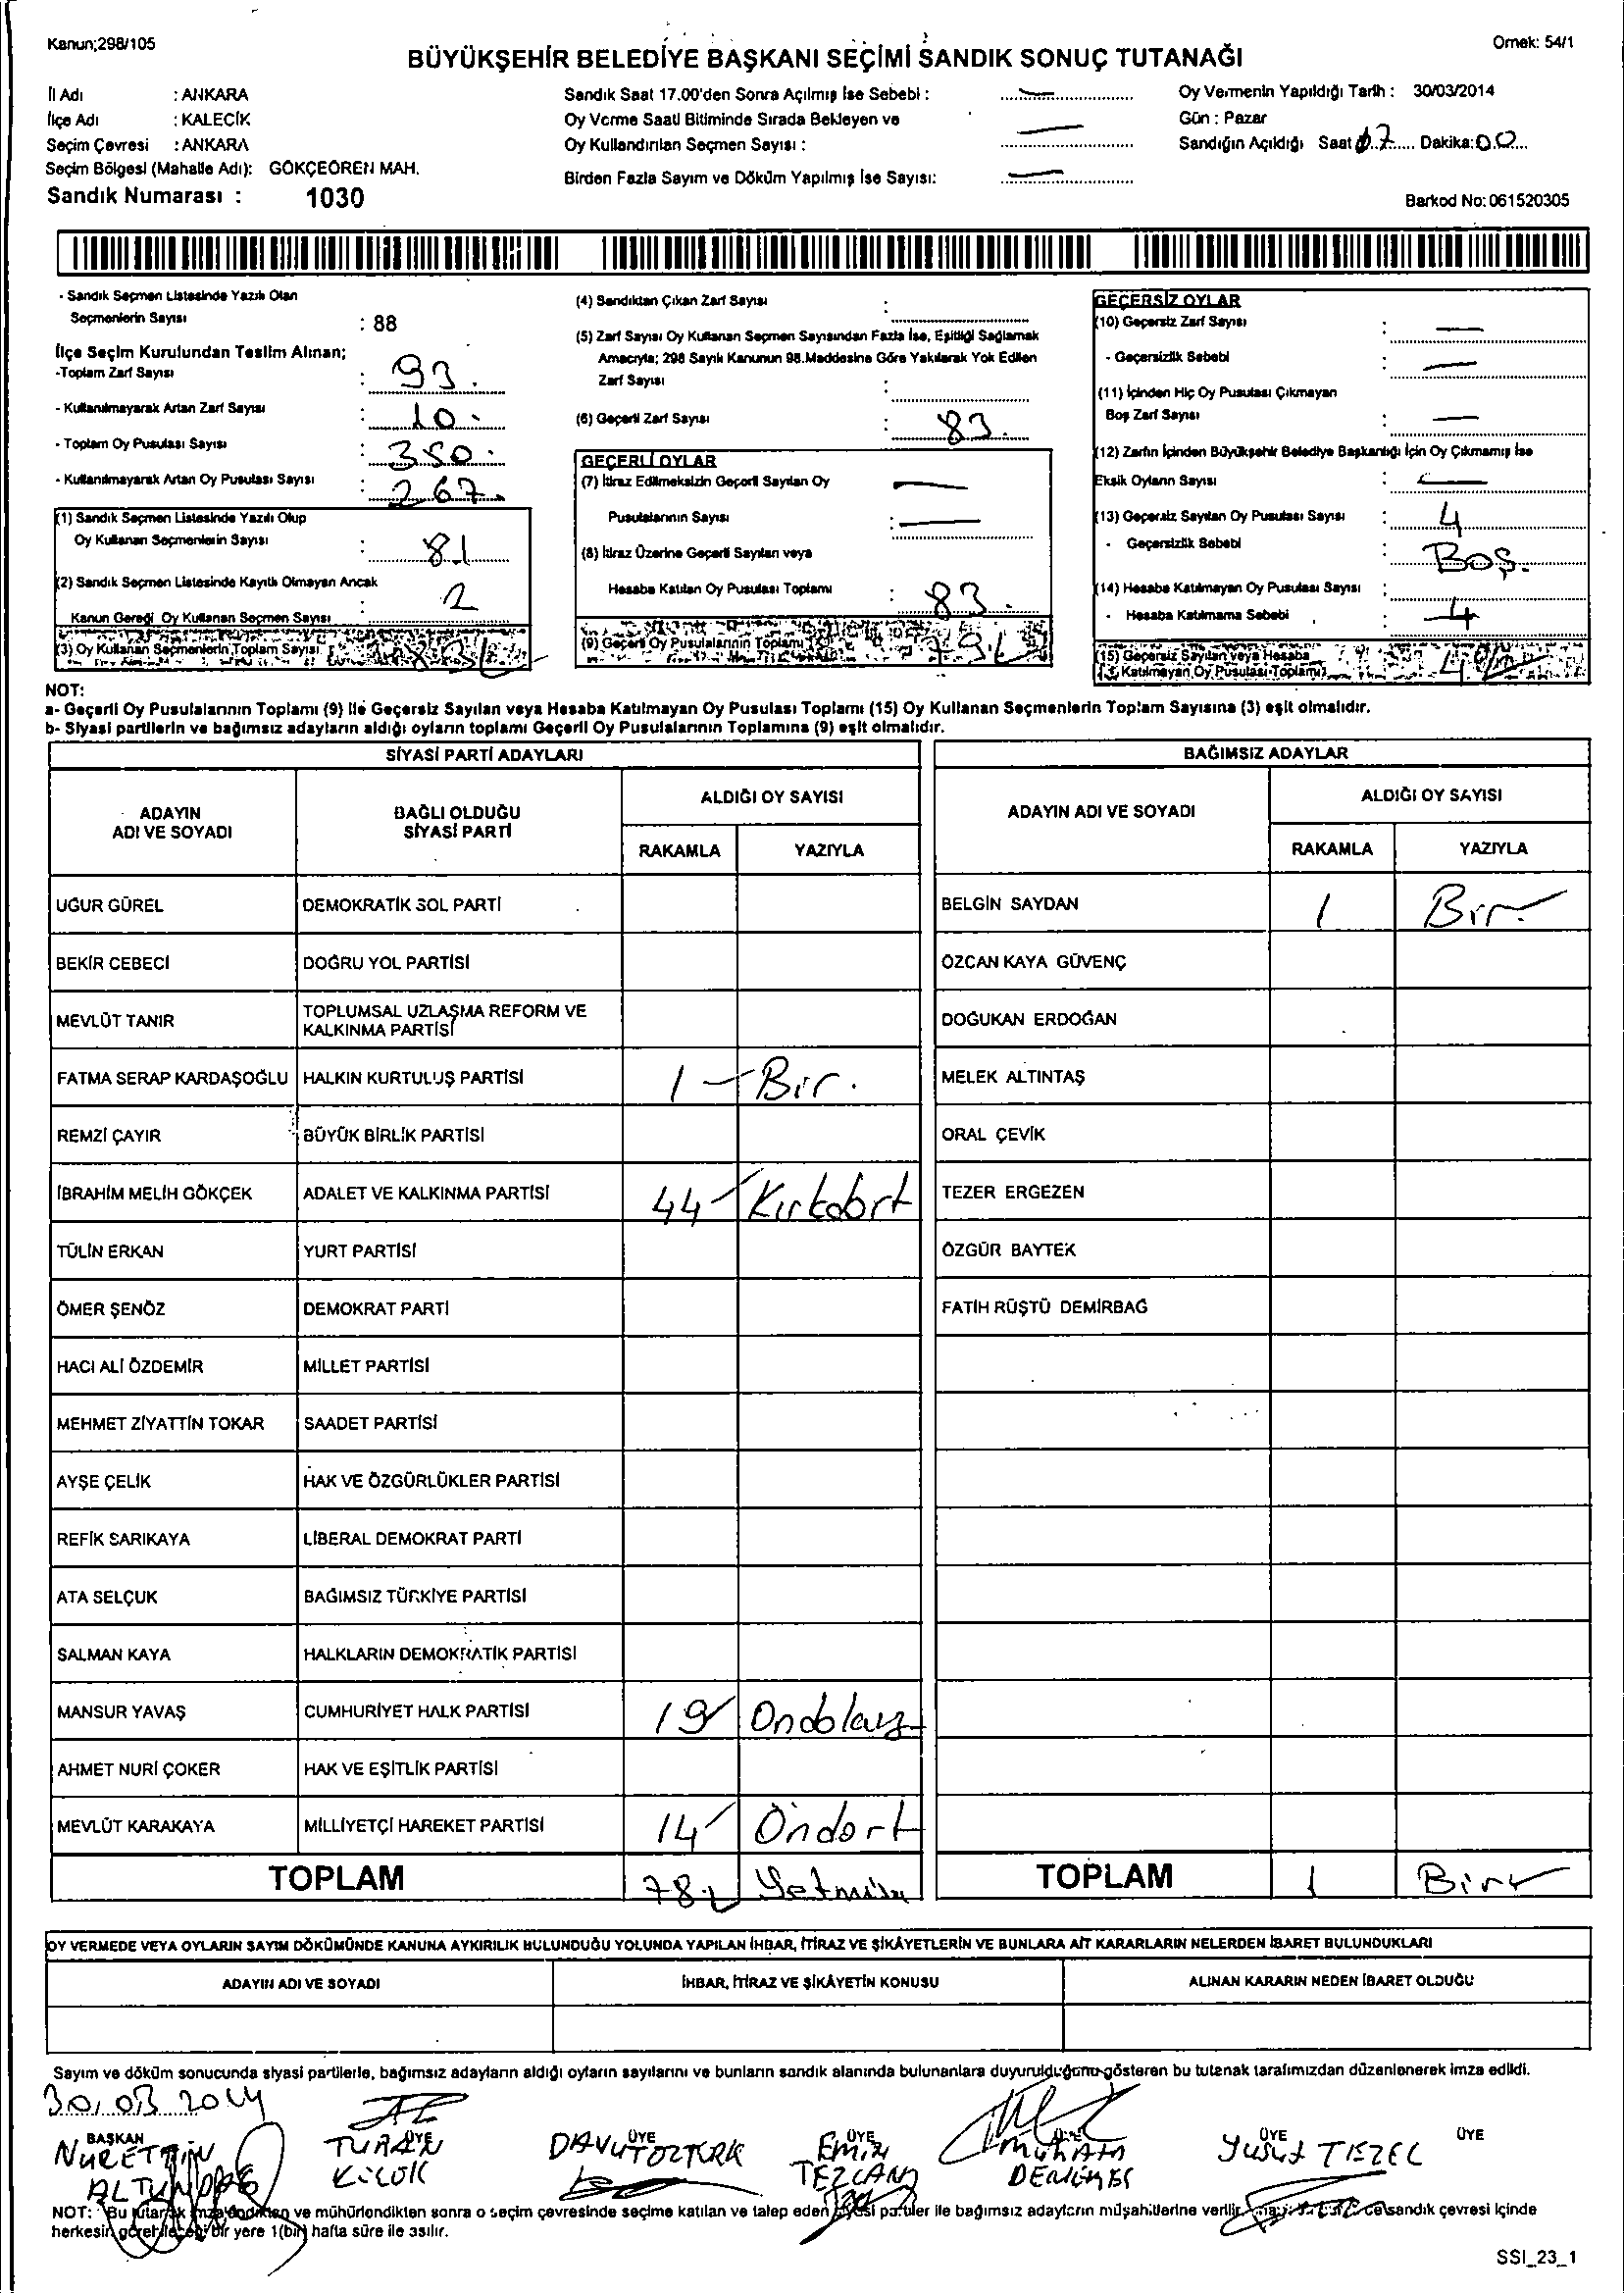 Kanun;298/105
Örnek: 54/1
BÜYÜKŞEHİR BELEDİYE BAŞKANI SEÇİMİ SANDIK SONUÇ TUTANAĞI
İl Adı : ANKARA
İlçe Adı : KALECİK
Seçim Çevresi : ANKARA
Seçim Bölgesi (Mahalle Adı): GÖKÇEÖREN MAH.
Sandık Numarası : 1030
Sandık Saat 17.00'den Sonra Açılmış İse Sebebi : —
Oy Verme Saati Bitiminde Sırada Bekleyen ve
Oy Kullandırılan Seçmen Sayısı : —
Birden Fazla Sayım ve Döküm Yapılmış İse Sayısı: —
Oy Vermenin Yapıldığı Tarih : 30/03/2014
Gün : Pazar
Sandığın Açıldığı Saat 17 Dakika: 00
Barkod No: 061520305
- Sandık Seçmen Listesinde Yazılı Olan
Seçmenlerin Sayısı : 88
İlçe Seçim Kurulundan Teslim Alınan;
-Toplam Zarf Sayısı : 93.
- Kullanılmayarak Artan Zarf Sayısı : 10.
- Toplam Oy Pusulası Sayısı : 350.
- Kullanılmayarak Artan Oy Pusulası Sayısı : 267.
(1) Sandık Seçmen Listesinde Yazılı Olup
Oy Kullanan Seçmenlerin Sayısı : 81
(2) Sandık Seçmen Listesinde Kayıtlı Olmayan Ancak
Kanun Gereği Oy Kullanan Seçmen Sayısı : 2
(3) Oy Kullanan Seçmenlerin Toplam Sayısı : 83
(4) Sandıktan Çıkan Zarf Sayısı :
(5) Zarf Sayısı Oy Kullanan Seçmen Sayısından Fazla İse, Eşitliği Sağlamak
Amacıyla; 298 Sayılı Kanunun 98.Maddesine Göre Yakılarak Yok Edilen
Zarf Sayısı :
(6) Geçerli Zarf Sayısı : 83.
GEÇERLİ OYLAR
(7) İtiraz Edilmeksizin Geçerli Sayılan Oy —
Pusulalarının Sayısı : —
(8) İtiraz Üzerine Geçerli Sayılan veya
Hesaba Katılan Oy Pusulası Toplamı : 83.
(9) Geçerli Oy Pusulalarının Toplamı 79
GEÇERSİZ OYLAR
(10) Geçersiz Zarf Sayısı : —
- Geçersizlik Sebebi : —
(11) İçinden Hiç Oy Pusulası Çıkmayan
Boş Zarf Sayısı : —
(12) Zarfın İçinden Büyükşehir Belediye Başkanlığı İçin Oy Çıkmamış İse
Eksik Oyların Sayısı : —
(13) Geçersiz Sayılan Oy Pusulası Sayısı : 4
- Geçersizlik Sebebi : Boş.
(14) Hesaba Katılmayan Oy Pusulası Sayısı :
- Hesaba Katılmama Sebebi : 4
(15) Geçersiz Sayılan veya Hesaba
Katılmayan Oy Pusulası Toplamı
NOT:
a- Geçerli Oy Pusulalarının Toplamı (9) ile Geçersiz Sayılan veya Hesaba Katılmayan Oy Pusulası Toplamı (15) Oy Kullanan Seçmenlerin Toplam Sayısına (3) eşit olmalıdır.
b- Siyasi partilerin ve bağımsız adayların aldığı oyların toplamı Geçerli Oy Pusulalarının Toplamına (9) eşit olmalıdır.
SİYASİ PARTİ ADAYLARI
ADAYIN ADI VE SOYADI BAĞLI OLDUĞU SİYASİ PARTİ ALDIĞI OY SAYISI
RAKAMLA YAZIYLA
UĞUR GÜREL DEMOKRATİK SOL PARTİ
BEKİR CEBECİ DOĞRU YOL PARTİSİ
MEVLÜT TANIR TOPLUMSAL UZLAŞMA REFORM VE KALKINMA PARTİSİ
FATMA SERAP KARDAŞOĞLU HALKIN KURTULUŞ PARTİSİ 1 Bir.
REMZİ ÇAYIR BÜYÜK BİRLİK PARTİSİ
İBRAHİM MELİH GÖKÇEK ADALET VE KALKINMA PARTİSİ 44 Kırkdört
TÜLİN ERKAN YURT PARTİSİ
ÖMER ŞENÖZ DEMOKRAT PARTİ
HACI ALİ ÖZDEMİR MİLLET PARTİSİ
MEHMET ZİYATTİN TOKAR SAADET PARTİSİ
AYŞE ÇELİK HAK VE ÖZGÜRLÜKLER PARTİSİ
REFİK SARIKAYA LİBERAL DEMOKRAT PARTİ
ATA SELÇUK BAĞIMSIZ TÜRKİYE PARTİSİ
SALMAN KAYA HALKLARIN DEMOKRATİK PARTİSİ
MANSUR YAVAŞ CUMHURİYET HALK PARTİSİ 19
AHMET NURİ ÇOKER HAK VE EŞİTLİK PARTİSİ
MEVLÜT KARAKAYA MİLLİYETÇİ HAREKET PARTİSİ 14 Ondört
TOPLAM 78
BAĞIMSIZ ADAYLAR
ADAYIN ADI VE SOYADI ALDIĞI OY SAYISI
RAKAMLA YAZIYLA
BELGİN SAYDAN 1 Bir
ÖZCAN KAYA GÜVENÇ
DOĞUKAN ERDOĞAN
MELEK ALTINTAŞ
ORAL ÇEVİK
TEZER ERGEZEN
ÖZGÜR BAYTEK
FATİH RÜŞTÜ DEMİRBAĞ
TOPLAM 1 Bir
OY VERMEDE VEYA OYLARIN SAYIM DÖKÜMÜNDE KANUNA AYKIRILIK BULUNDUĞU YOLUNDA YAPILAN İHBAR, İTİRAZ VE ŞİKÂYETLERİN VE BUNLARA AİT KARARLARIN NELERDEN İBARET BULUNDUKLARI
ADAYIN ADI VE SOYADI İHBAR, İTİRAZ VE ŞİKÂYETİN KONUSU ALINAN KARARIN NEDEN İBARET OLDUĞU
Sayım ve döküm sonucunda siyasi partilerle, bağımsız adayların aldığı oyların sayılarını ve bunların sandık alanında bulunanlara duyurulduğunu gösteren bu tutanak tarafımızdan düzenlenerek imza edildi.
30.03.2014
BAŞKAN ÜYE ÜYE ÜYE ÜYE ÜYE ÜYE
NURETTİN TURAN DAVUT ÖZTÜRK EMİN Yusuf TEZEL
TEZCAN
NOT: Bu tutanak imzalandıktan ve mühürlendikten sonra o seçim çevresinde seçime katılan ve talep eden siyasi partiler ile bağımsız adayların müşahitlerine verilir sandık çevresi içinde
herkesin görebileceği bir yere 1(bir) hafta süre ile asılır.
SSI_23_1